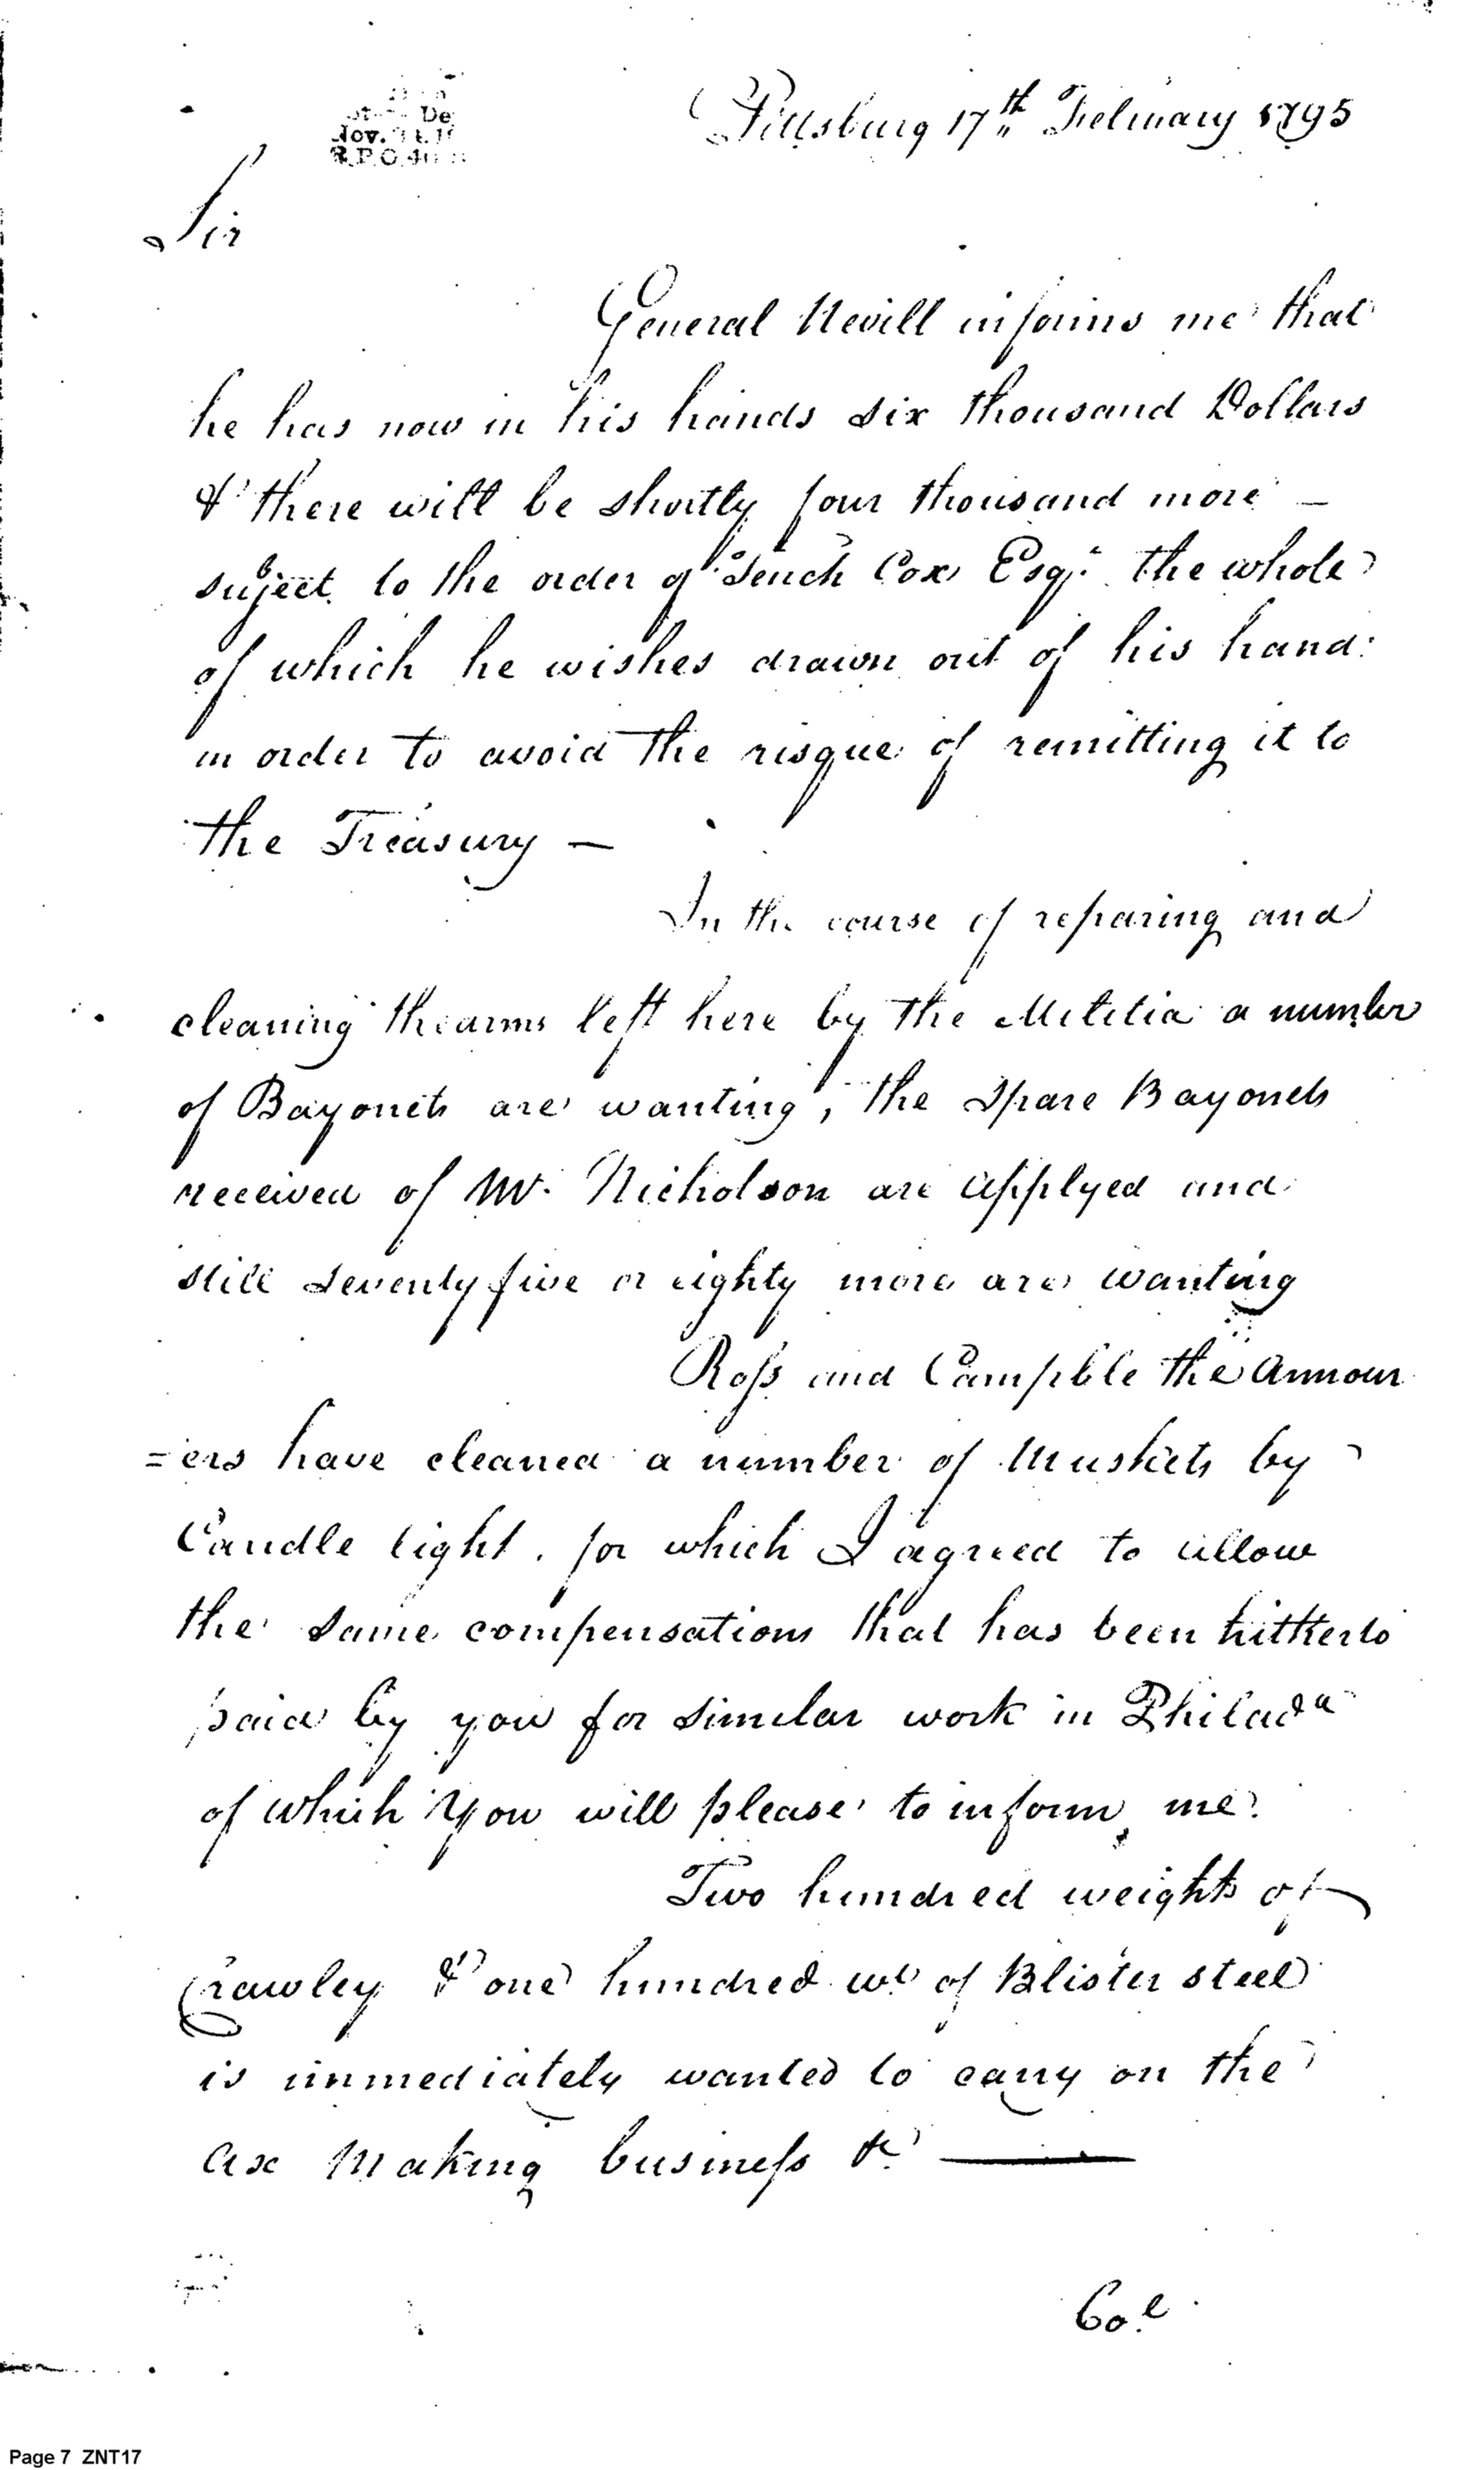 Pittsburg 17th February 1795
De
Nov.
R.P.O.
Sir
General Nevill informs me that
he has now in his hands six thousand Dollars
& there will be shortly four thousand more —
subject to the order of Tench Cox Esqr. the whole
of which he wishes drawn out of his hand:
in order to avoid the risque of remitting it to
the Treasury —
In the course of reparing and
cleaning the arms left here by the Militia a number
of Bayonets are wanting, the spare Bayonets
received of Mr. Nicholson are applyed and
still seventy five or eighty more are wanting
Ross and Campble the Armour
=ers have cleaned a number of Muskets by
Candle light. for which I agreed to allow
the same compensations that has been hittherto
paid by you for similar work in Philada
of which you will please to inform me.
Two hundred weight of
Crawley & one hundred wt. of Blister steel
is immediately wanted to carry on the
ax Making business &c. —
Col.
Page 7 ZNT17